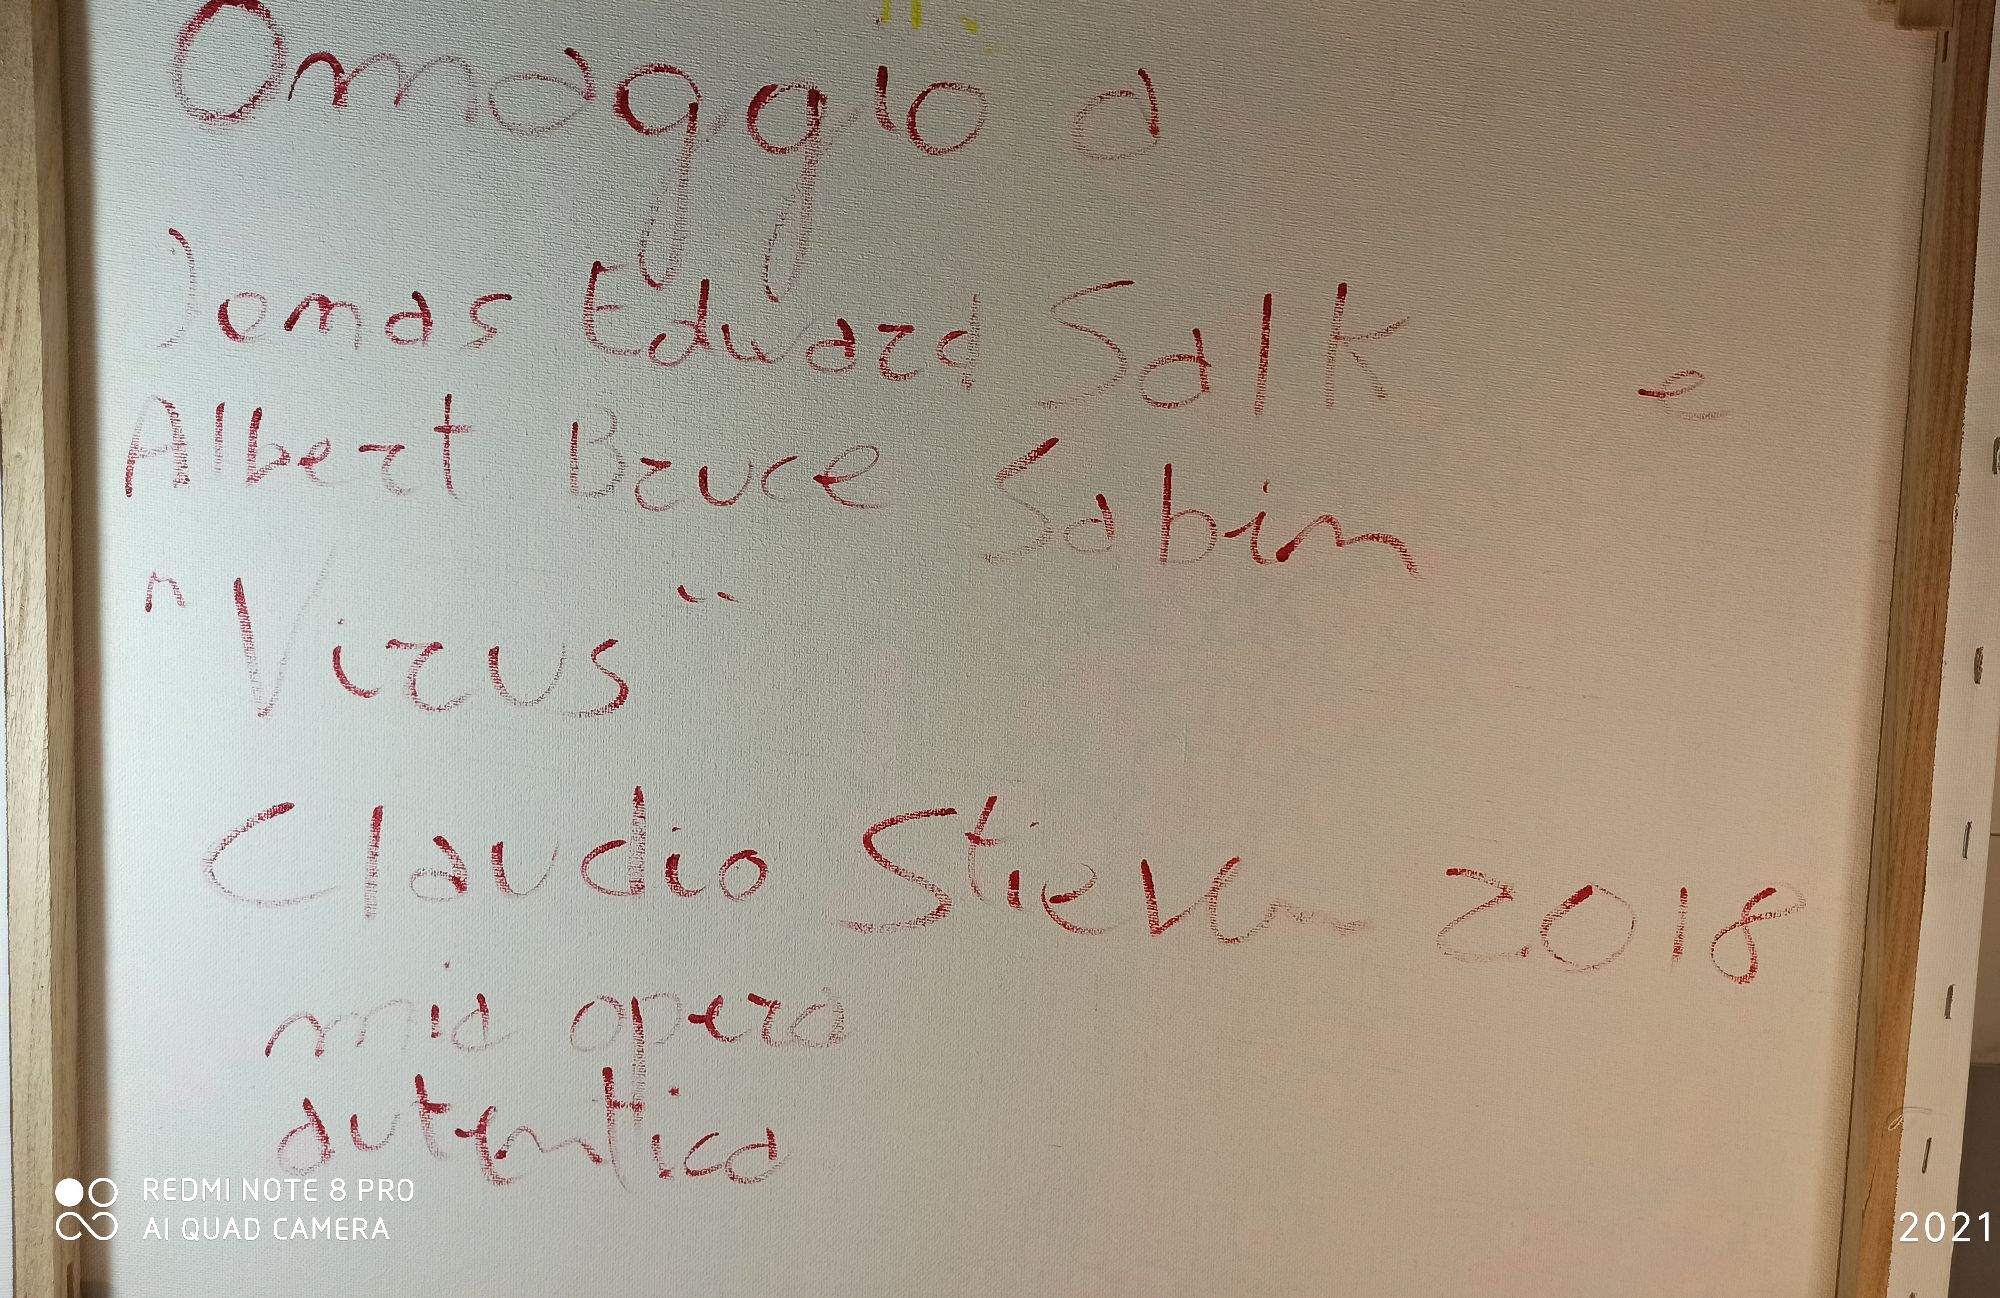 Omaggio a
Jonas Edward Salk e
Albert Bruce Sabin
"Virus"
Claudio Stieven 2018
mia opera
autentica
REDMI NOTE 8 PRO
AI QUAD CAMERA
2021